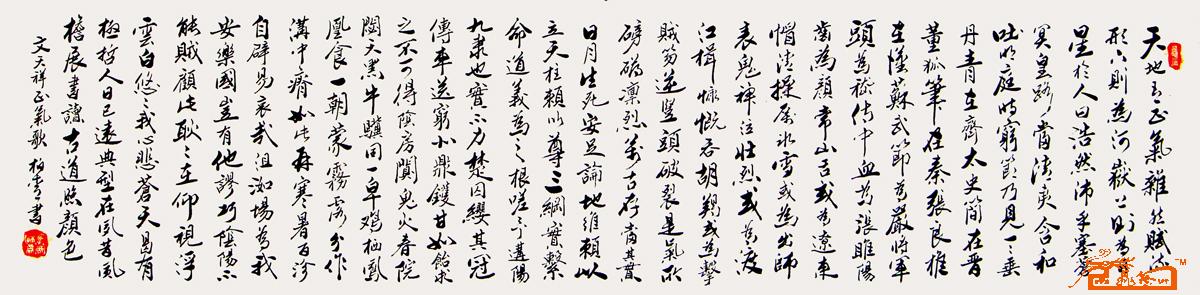 天地有正氣雜然賦流
形下則為河嶽上則為日
星於人曰浩然沛乎塞蒼
冥皇路當清夷含和
吐明庭時窮節乃見一一垂
丹青在齊太史簡在晉
董狐筆在秦張良椎
在漢蘇武節為嚴將軍
頭為嵇侍中血為張睢陽
齒為顏常山舌或為遼東
帽清操厲冰雪或為出師
表鬼神泣壯烈或為渡
江楫慷慨吞胡羯或為擊
賊笏逆豎頭破裂是氣所
磅礴凜烈萬古存當其貫
日月生死安足論地維賴以
立天柱賴以尊三綱實繫
命道義為之根嗟予遘陽
九隸也實不力楚囚纓其冠
傳車送窮北鼎鑊甘如飴求
之不可得陰房闃鬼火春院
閟天黑牛驥同一皁雞栖鳳
凰食一朝蒙霧露分作
溝中瘠如此再寒暑百沴
自辟易哀哉沮洳場為我
安樂國豈有他謬巧陰陽不
能賊顧此耿耿在仰視浮
雲白悠悠我心悲蒼天曷有
極哲人日已遠典型在夙昔風
檐展書讀古道照顏色
文天祥正氣歌 書